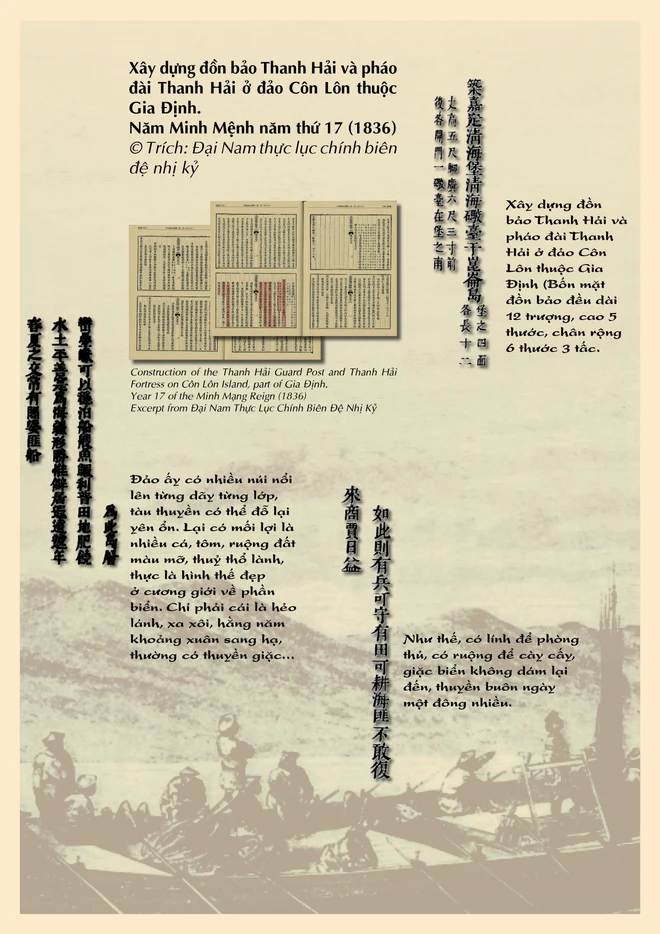 Xây dựng đồn bảo Thanh Hải và pháo
đài Thanh Hải ở đảo Côn Lôn thuộc
Gia Định.
Năm Minh Mệnh năm thứ 17 (1836)
© Trích: Đại Nam thực lục chính biên
đệ nhị kỷ
築嘉定清海堡清海礮臺于崑崙島
堡之四面
各長十二
丈高五尺腳廣六尺三寸前
後各開門一礮臺在堡之南
Xây dựng đồn
bảo Thanh Hải và
pháo đài Thanh
Hải ở đảo Côn
Lôn thuộc Gia
Định (Bốn mặt
đồn bảo đều dài
12 trượng, cao 5
thước, chân rộng
6 thước 3 tấc.
Construction of the Thanh Hải Guard Post and Thanh Hải
Fortress on Côn Lôn Island, part of Gia Định.
Year 17 of the Minh Mạng Reign (1836)
Excerpt from Đại Nam Thực Lục Chính Biên Đệ Nhị Kỷ
島此島層
巒疊巘可以穩泊船艘魚鰕利普田地肥饒
水土平善寔為海疆形勝惟僻居遐遠遞年
春夏之交常有閣婆匪船
Đảo ấy có nhiều núi nổi
lên từng dãy từng lớp,
tàu thuyền có thể đỗ lại
yên ổn. Lại có mối lợi là
nhiều cá, tôm, ruộng đất
màu mỡ, thuỷ thổ lành,
thực là hình thế đẹp
ở cương giới về phần
biển. Chỉ phải cái là hẻo
lánh, xa xôi, hằng năm
khoảng xuân sang hạ,
thường có thuyền giặc...
如此則有兵可守有田可耕海匪不敢復
來商賈日益
Như thế, có lính để phòng
thủ, có ruộng để cày cấy,
giặc biển không dám lại
đến, thuyền buôn ngày
một đông nhiều.